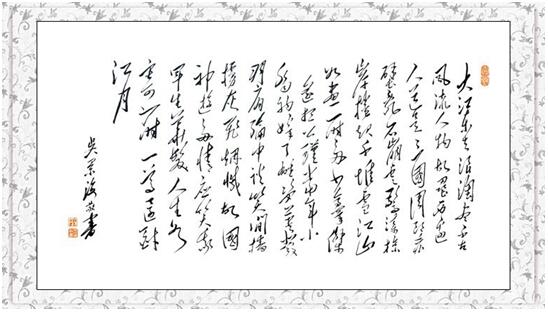 大江东去浪淘尽千古
风流人物故垒西边
人道是三国周郎赤
壁乱石崩云惊涛掠
岸卷起千堆雪江山
如画一时多少豪杰
遥想公瑾当年小
乔初嫁了雄姿英发
羽扇纶巾谈笑间樯
橹灰飞烟灭故国
神游多情应笑我
早生华发人生如
一尊还酹
江月
书